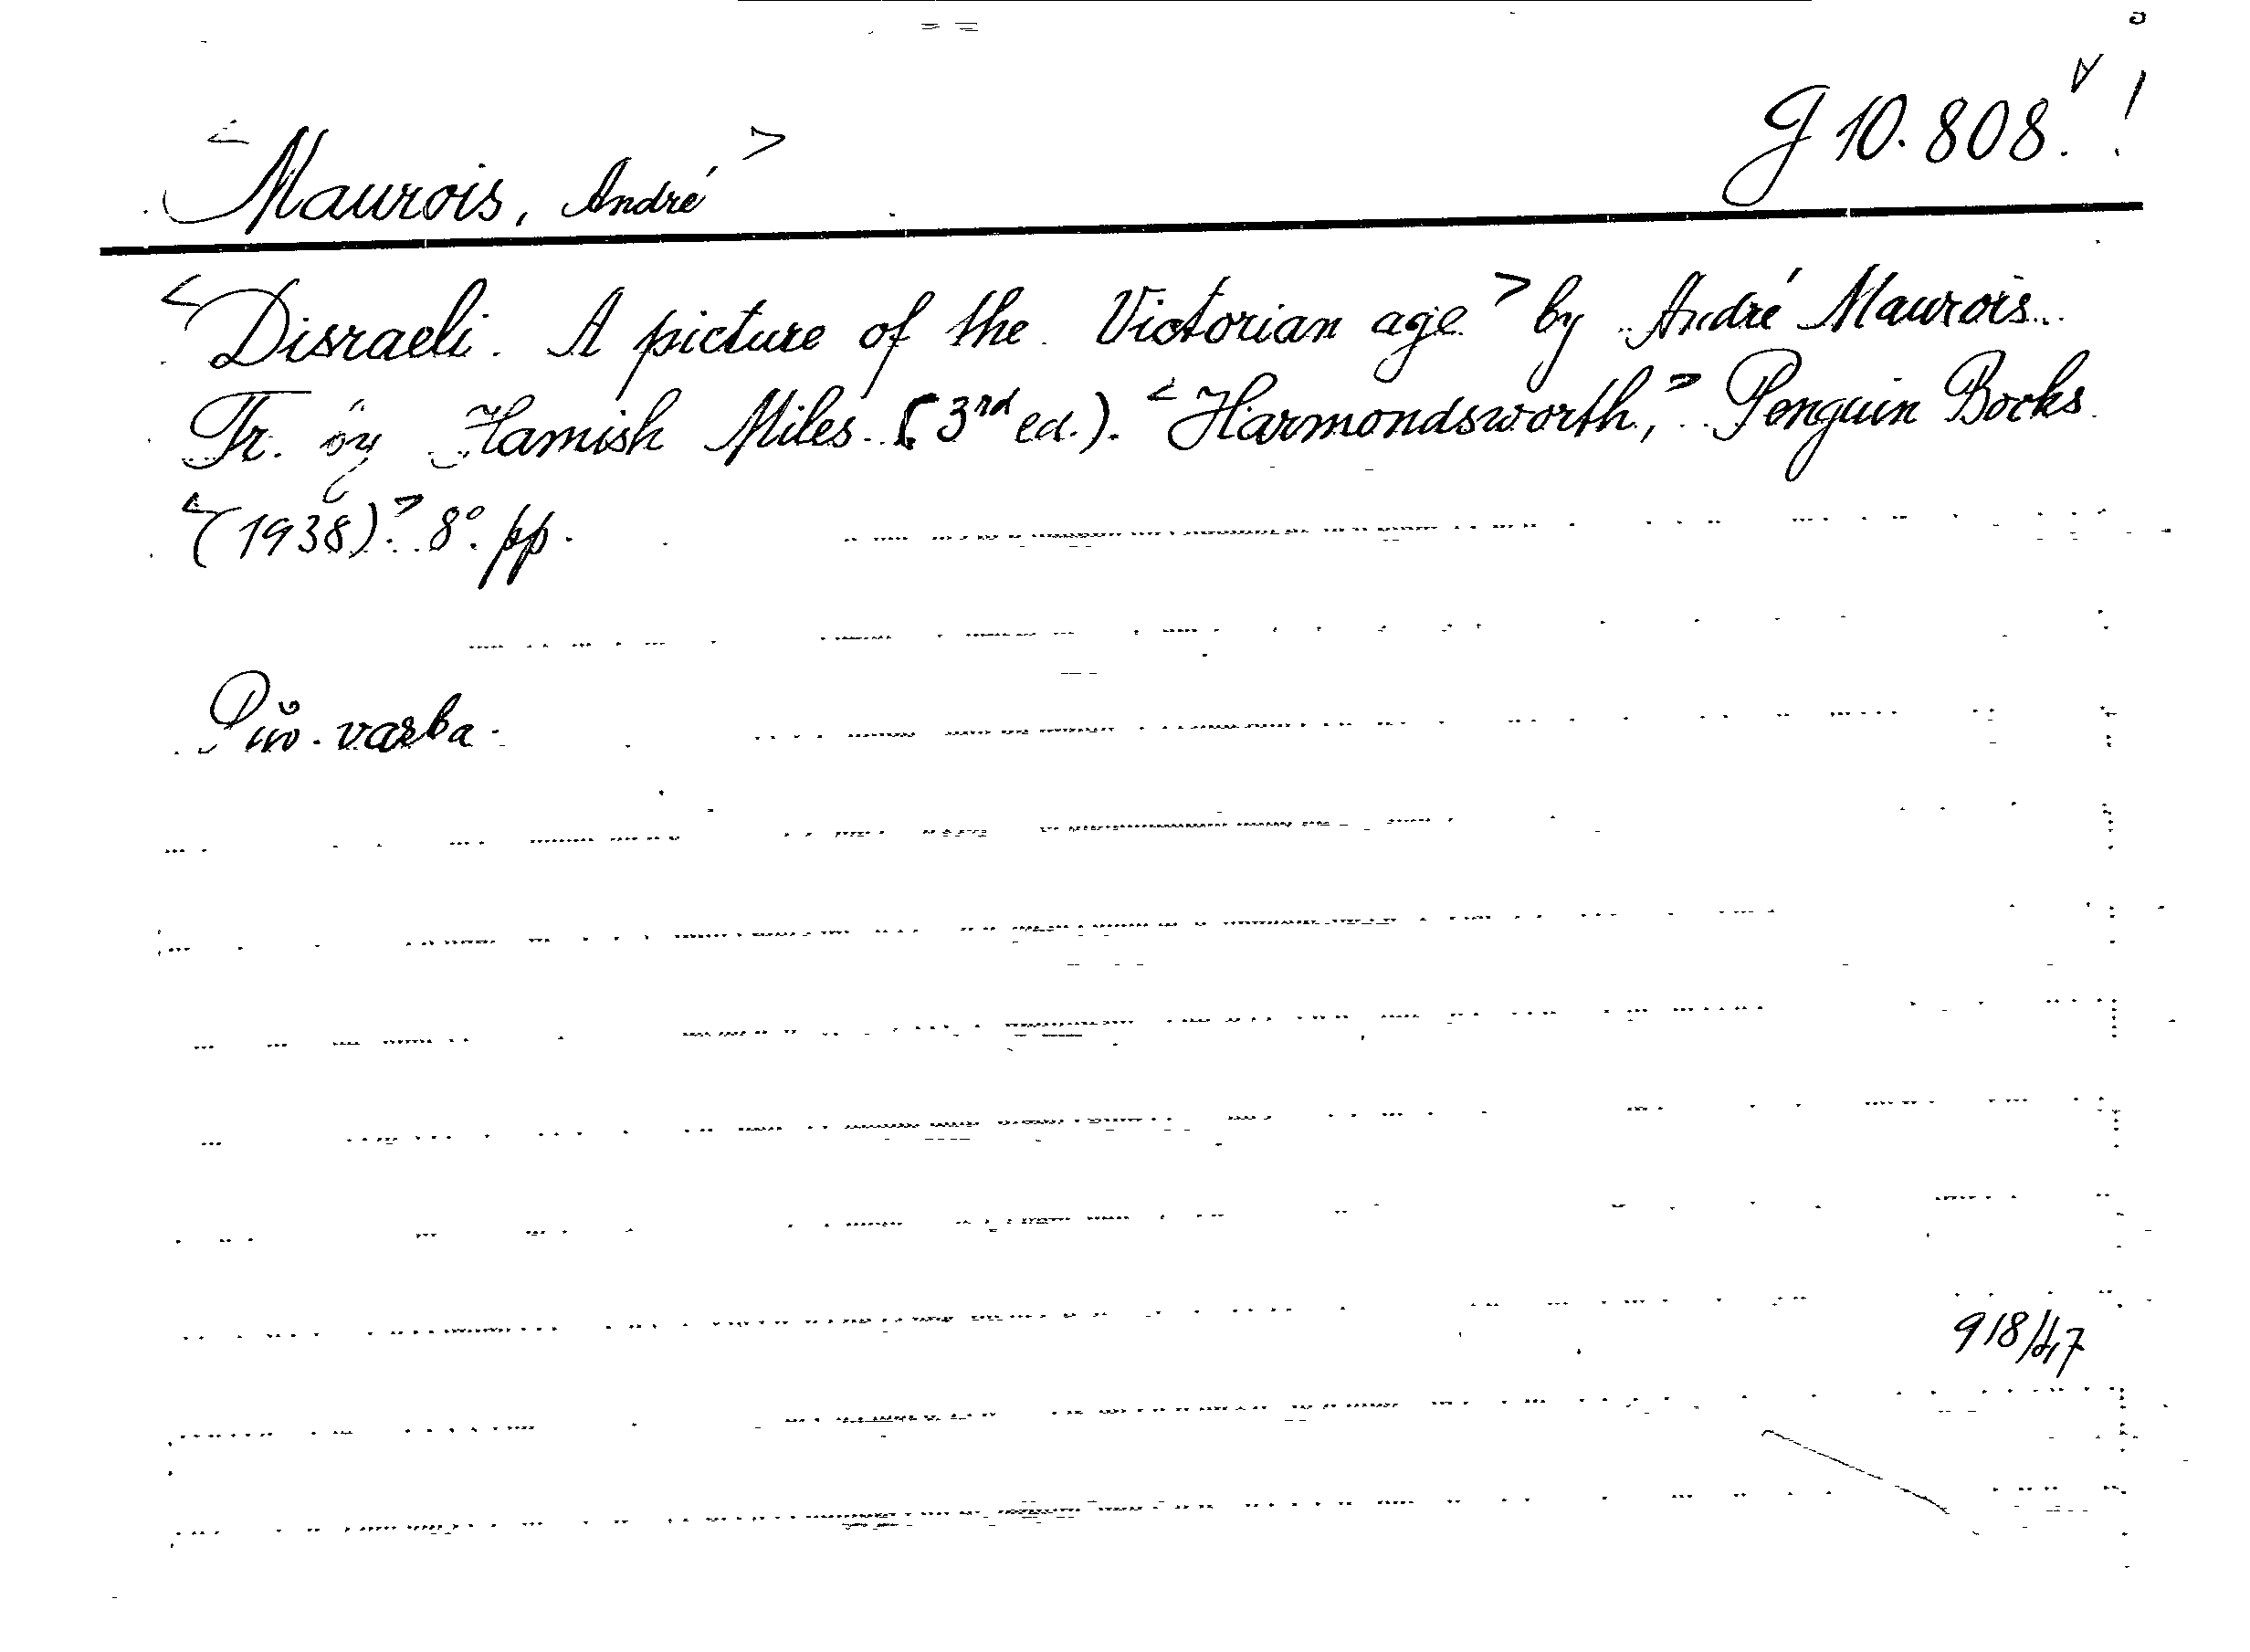 G 10.808. !
<Maurois, André>
<Disraeli. A picture of the Victorian age> by André Maurois.
Tr. by Hamish Miles. (3rd ed.). <Harmondsworth,> Penguin Books
<(1938).> 8°. pp.
Pův. varba.
918/47